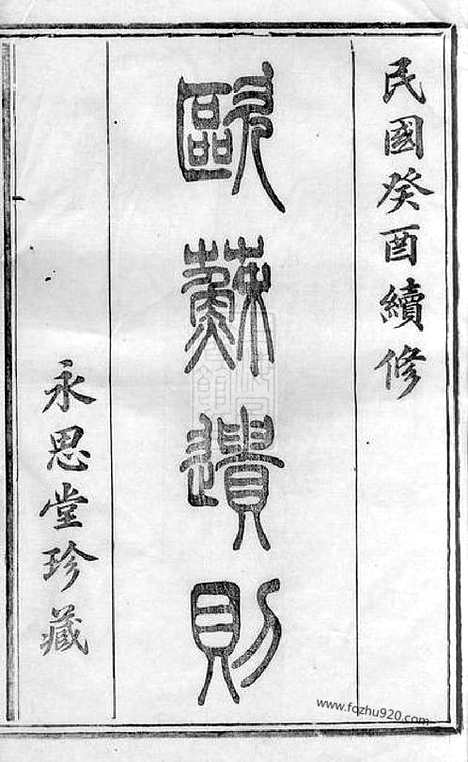 民國癸酉續修
歐蘇遺則
永思堂珍藏
www.fqzhu920.com